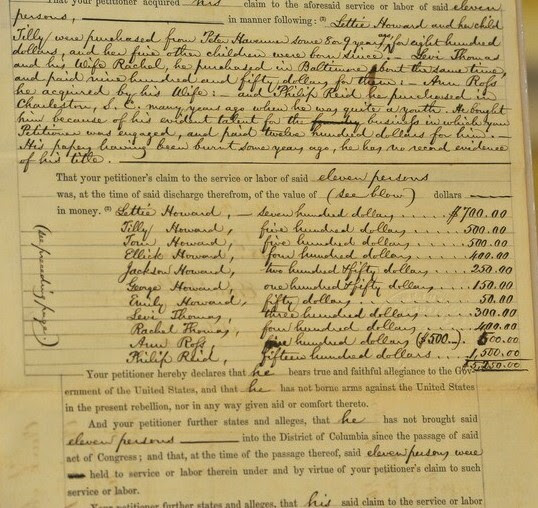 That your petitioner acquired his claim to the aforesaid service or labor of said eleven
persons, in manner following: (2) Lettie Howard and her child
Tilly were purchased from Peter Havenner some 8 or 9 years ago for eight hundred
dollars, and her five other children were born since. - Levi Thomas
and his Wife Rachel, he purchased in Baltimore about the same time,
and paid nine hundred and fifty dollars for them: - Ann Ross
he acquired by his Wife: - and Philip Reid he purchased in
Charleston, S. C. many years ago when he was quite a youth. He bought
him because of his evident talent for the business in which your
Petitioner was engaged, and paid twelve hundred dollars for him. -
His papers having been burnt some years ago, he has no record evidence
of his title.
That your petitioner's claim to the service or labor of said eleven persons
was, at the time of said discharge therefrom, of the value of (see blow) dollars
in money. (3) Lettie Howard, - seven hundred dollars .... $700.00
Tilly Howard, five hundred dollars .... 500.00
Tom Howard, five hundred dollars .... 500.00
Ellick Howard, four hundred dollars .... 400.00
Jackson Howard, two hundred & fifty dollars .... 250.00
George Howard, one hundred & fifty dollars .... 150.00
Emily Howard, fifty dollars .... 50.00
Levi Thomas, three hundred dollars .... 300.00
Rachel Thomas, four hundred dollars .... 400.00
Ann Ross, five hundred dollars ($500-) 500.00
Philip Reid, fifteen hundred dollars .... 1,500.00
$5,250.00
(see preceding page)
Your petitioner hereby declares that he bears true and faithful allegiance to the Gov-
ernment of the United States, and that he has not borne arms against the United States
in the present rebellion, nor in any way given aid or comfort thereto.
And your petitioner further states and alleges, that he has not brought said
eleven persons into the District of Columbia since the passage of said
act of Congress; and that, at the time of the passage thereof, said eleven persons were
held to service or labor therein under and by virtue of your petitioner's claim to such
service or labor.
Your petitioner further states and alleges, that his said claim to the service or labor